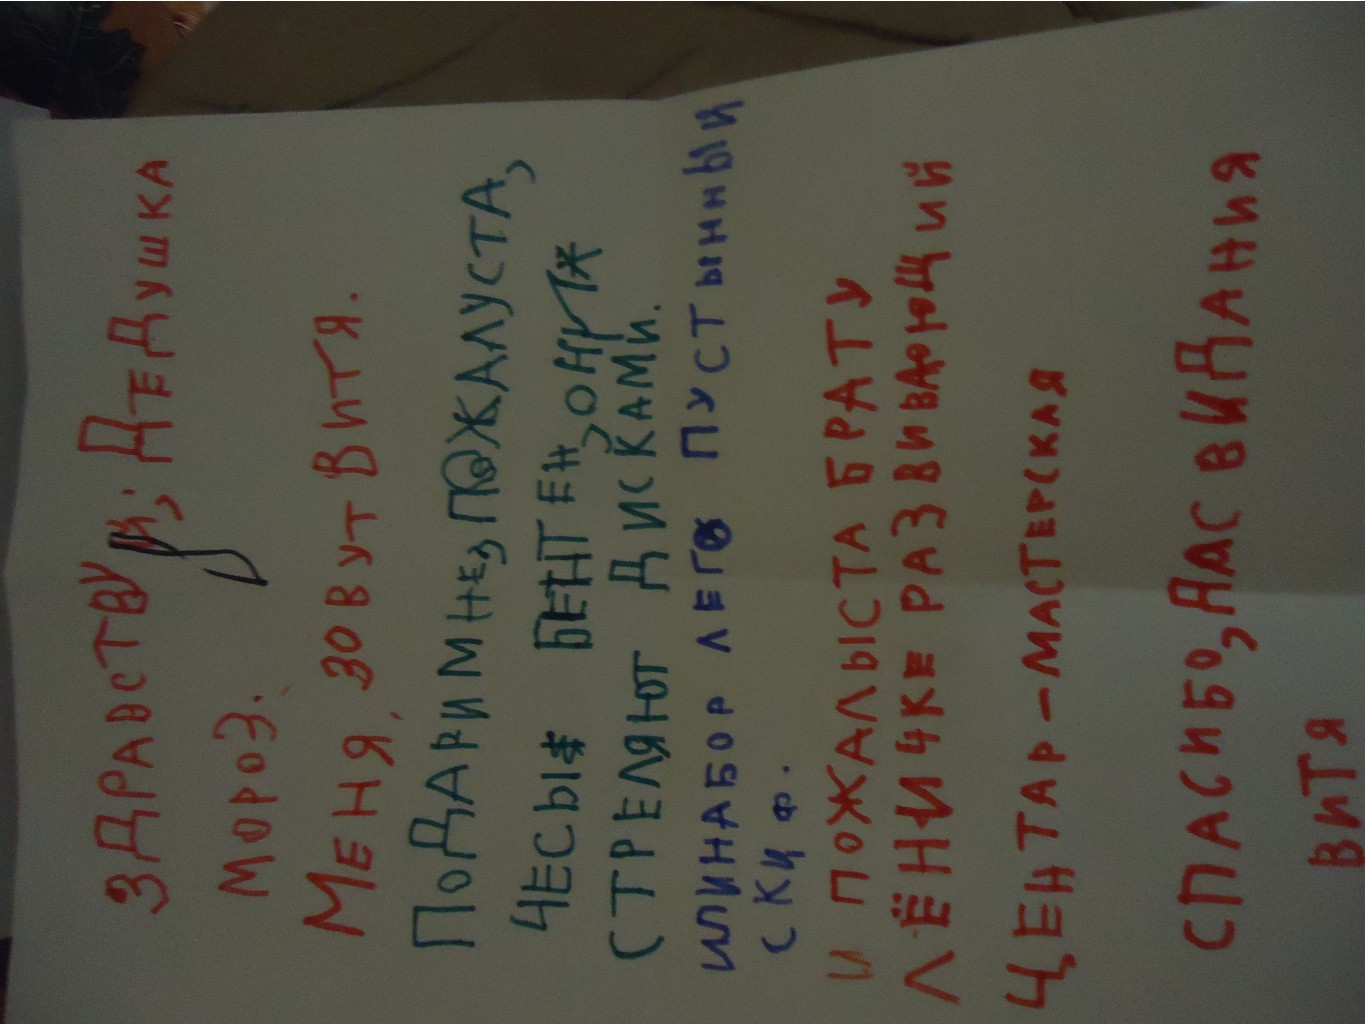 ЗДРАВСТВУЙ, ДЕДУШКА
МОРОЗ.
МЕНЯ ЗОВУТ ВИТЯ.
ПОДАРИ МНЕ, ПОЖАЛУСТА,
ЧЕСЫ БЕНТЕН, ОНИ
СТРЕЛЯЮТ ДИСКАМИ.
ИЛИ НАБОР ЛЕГО ПУСТЫННЫЙ
СКИФ.
И ПОЖАЛЫСТА БРАТУ
ЛЁНИЧКЕ РАЗВИВАЮЩИЙ
ЦЕНТАР-МАСТЕРСКАЯ
СПАСИБО, ДАСВИДАНИЯ
ВИТЯ